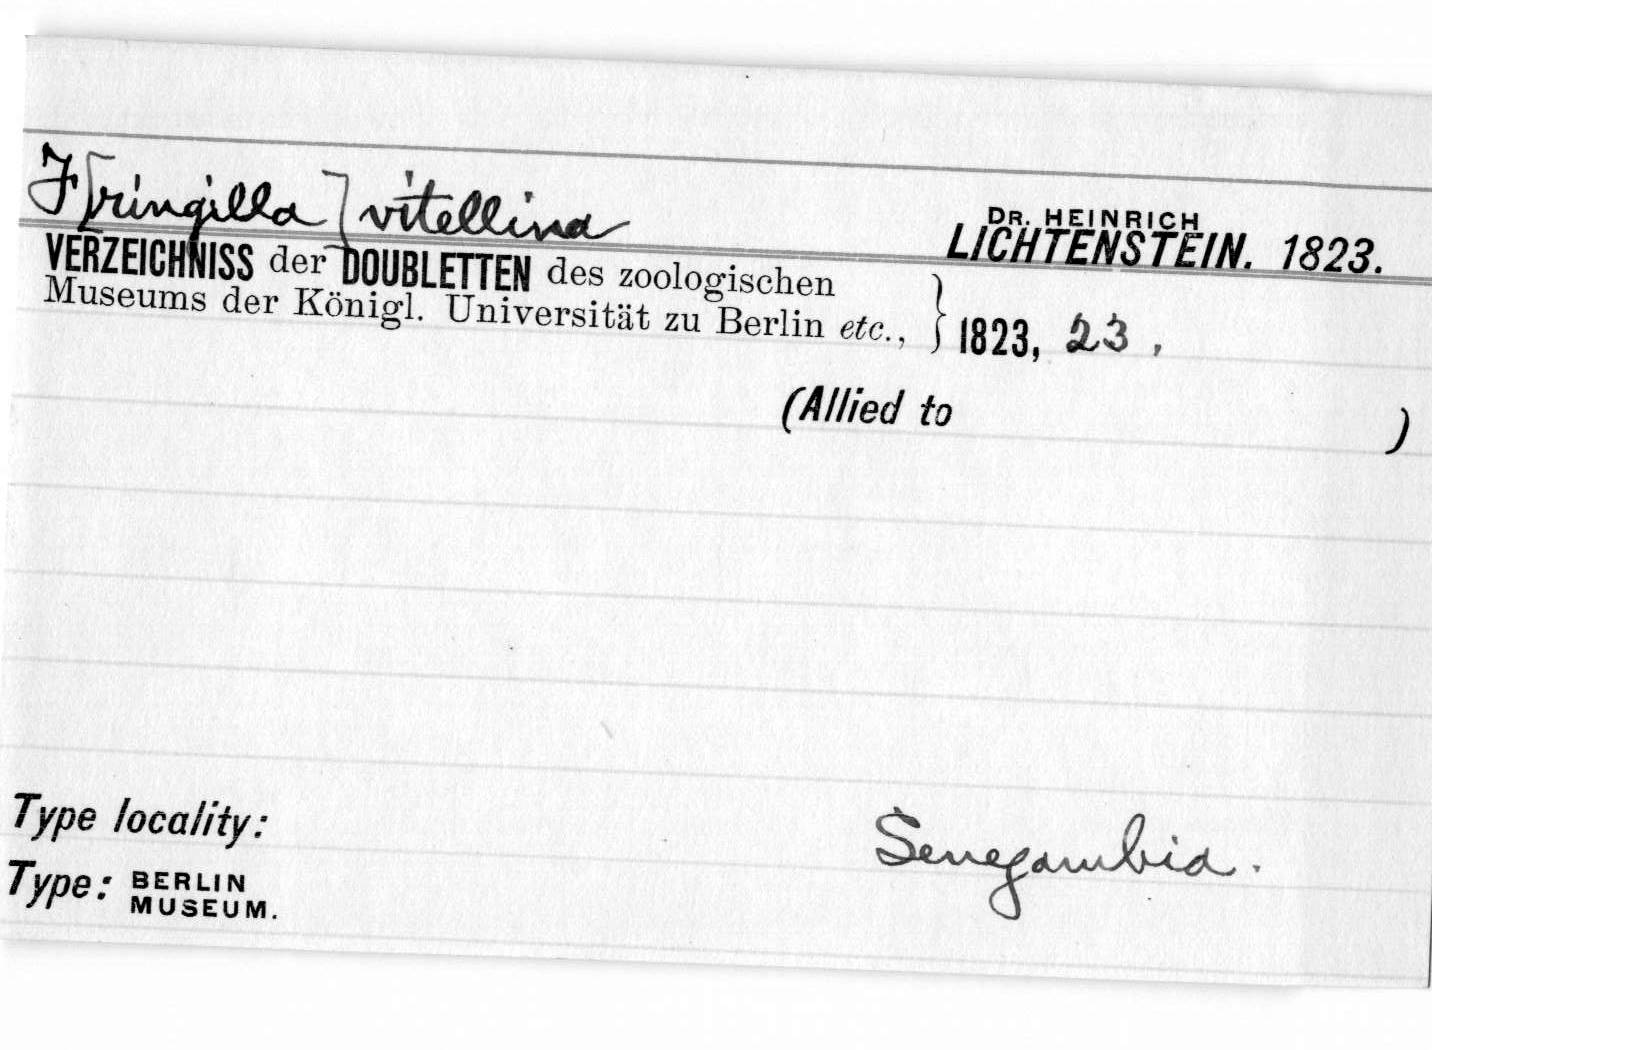 F[ringilla] vitellina
DR. HEINRICH
LICHTENSTEIN. 1823.
VERZEICHNISS der DOUBLETTEN des zoologischen
Museums der Königl. Universität zu Berlin etc., } 1823, 23,
(Allied to )
Type locality: Senegambia.
Type: BERLIN
MUSEUM.